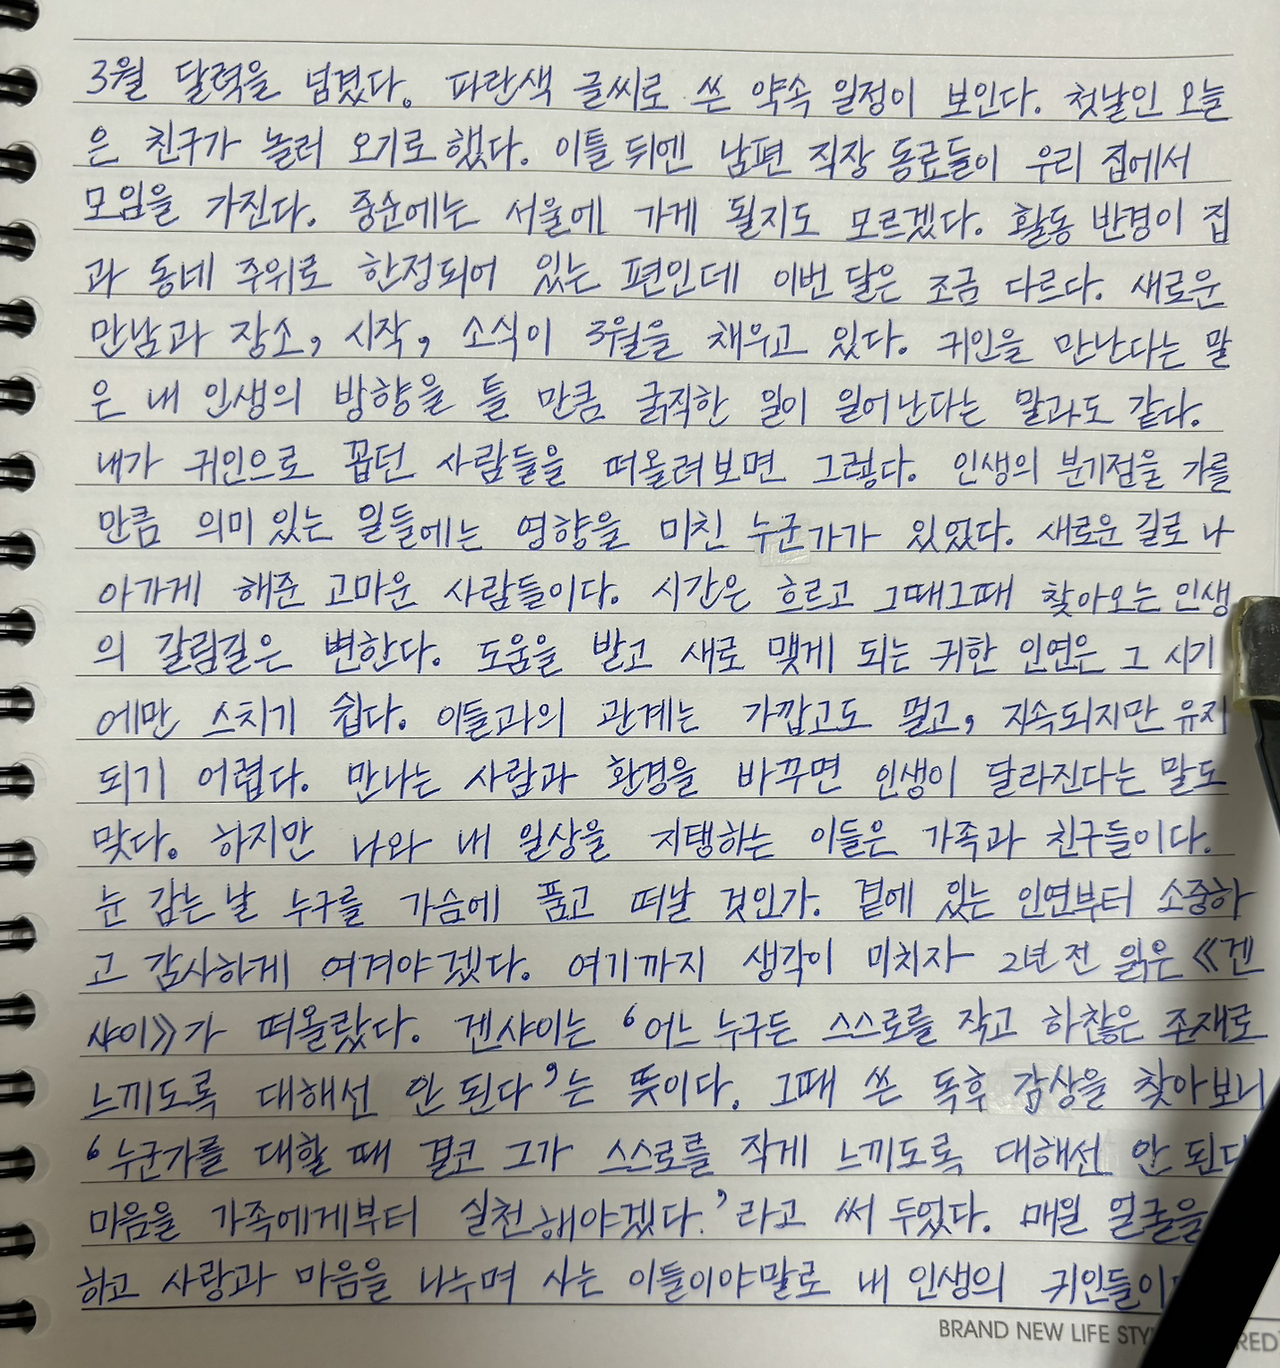 3월 달력을 넘겼다. 파란색 글씨로 쓴 약속 일정이 보인다. 첫날인 오늘
은 친구가 놀러 오기로 했다. 이틀 뒤엔 남편 직장 동료들이 우리 집에서
모임을 가진다. 중순에는 서울에 가게 될지도 모르겠다. 활동 반경이 집
과 동네 주위로 한정되어 있는 편인데 이번 달은 조금 다르다. 새로운
만남과 장소, 시작, 소식이 3월을 채우고 있다. 귀인을 만난다는 말
은 내 인생의 방향을 틀 만큼 굵직한 일이 일어난다는 말과도 같다.
내가 귀인으로 꼽던 사람들을 떠올려보면 그렇다. 인생의 분기점을 가를
만큼 의미 있는 일들에는 영향을 미친 누군가가 있었다. 새로운 길로 나
아가게 해준 고마운 사람들이다. 시간은 흐르고 그때그때 찾아오는 인생
의 갈림길은 변한다. 도움을 받고 새로 맺게 되는 귀한 인연은 그 시기
에만 스치기 쉽다. 이들과의 관계는 가깝고도 멀고, 지속되지만 유지
되기 어렵다. 만나는 사람과 환경을 바꾸면 인생이 달라진다는 말도
맞다. 하지만 나와 내 일상을 지탱하는 이들은 가족과 친구들이다.
눈 감는 날 누구를 가슴에 품고 떠날 것인가. 곁에 있는 인연부터 소중하
고 감사하게 여겨야겠다. 여기까지 생각이 미치자 2년 전 읽은 《겐
샤이》가 떠올랐다. 겐샤이는 '어느 누구든 스스로를 작고 하찮은 존재로
느끼도록 대해선 안 된다'는 뜻이다. 그때 쓴 독후 감상을 찾아보니
'누군가를 대할 때 결코 그가 스스로를 작게 느끼도록 대해선 안 된다
마음을 가족에게부터 실천해야겠다.'라고 써 두었다. 매일 얼굴을
하고 사랑과 마음을 나누며 사는 이들이야말로 내 인생의 귀인들이
BRAND NEW LIFE